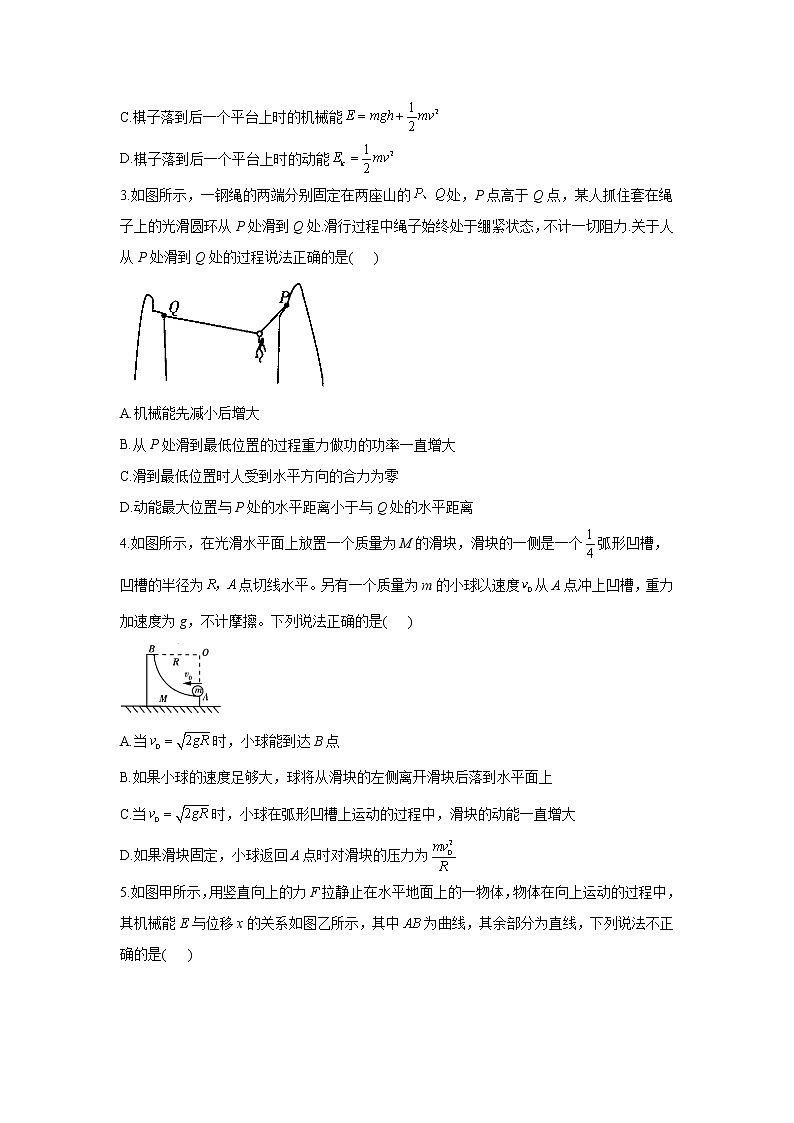 C.棋子落到后一个平台上时的机械能 E = mgh + \frac{1}{2}mv²
D.棋子落到后一个平台上时的动能 E_K = \frac{1}{2}mv²
3.如图所示，一钢绳的两端分别固定在两座山的P、Q处，P点高于Q点，某人抓住套在绳
子上的光滑圆环从P处滑到Q处.滑行过程中绳子始终处于绷紧状态,不计一切阻力.关于人
从P处滑到Q处的过程说法正确的是( )
Q
P
A.机械能先减小后增大
B.从P处滑到最低位置的过程重力做功的功率一直增大
C.滑到最低位置时人受到水平方向的合力为零
D.动能最大位置与P处的水平距离小于与Q处的水平距离
4.如图所示，在光滑水平面上放置一个质量为M的滑块，滑块的一侧是一个\frac{1}{4}弧形凹槽，
凹槽的半径为R，A点切线水平。另有一个质量为m的小球以速度v₀从A点冲上凹槽，重力
加速度为g，不计摩擦。下列说法正确的是( )
B
R
O
v₀
m
M
A
A.当v₀ = \sqrt{2gR}时，小球能到达B点
B.如果小球的速度足够大，球将从滑块的左侧离开滑块后落到水平面上
C.当v₀ = \sqrt{2gR}时，小球在弧形凹槽上运动的过程中，滑块的动能一直增大
D.如果滑块固定，小球返回A点时对滑块的压力为\frac{mv₀²}{R}
5.如图甲所示,用竖直向上的力F拉静止在水平地面上的一物体,物体在向上运动的过程中,
其机械能E与位移x的关系如图乙所示，其中AB为曲线，其余部分为直线，下列说法不正
确的是( )